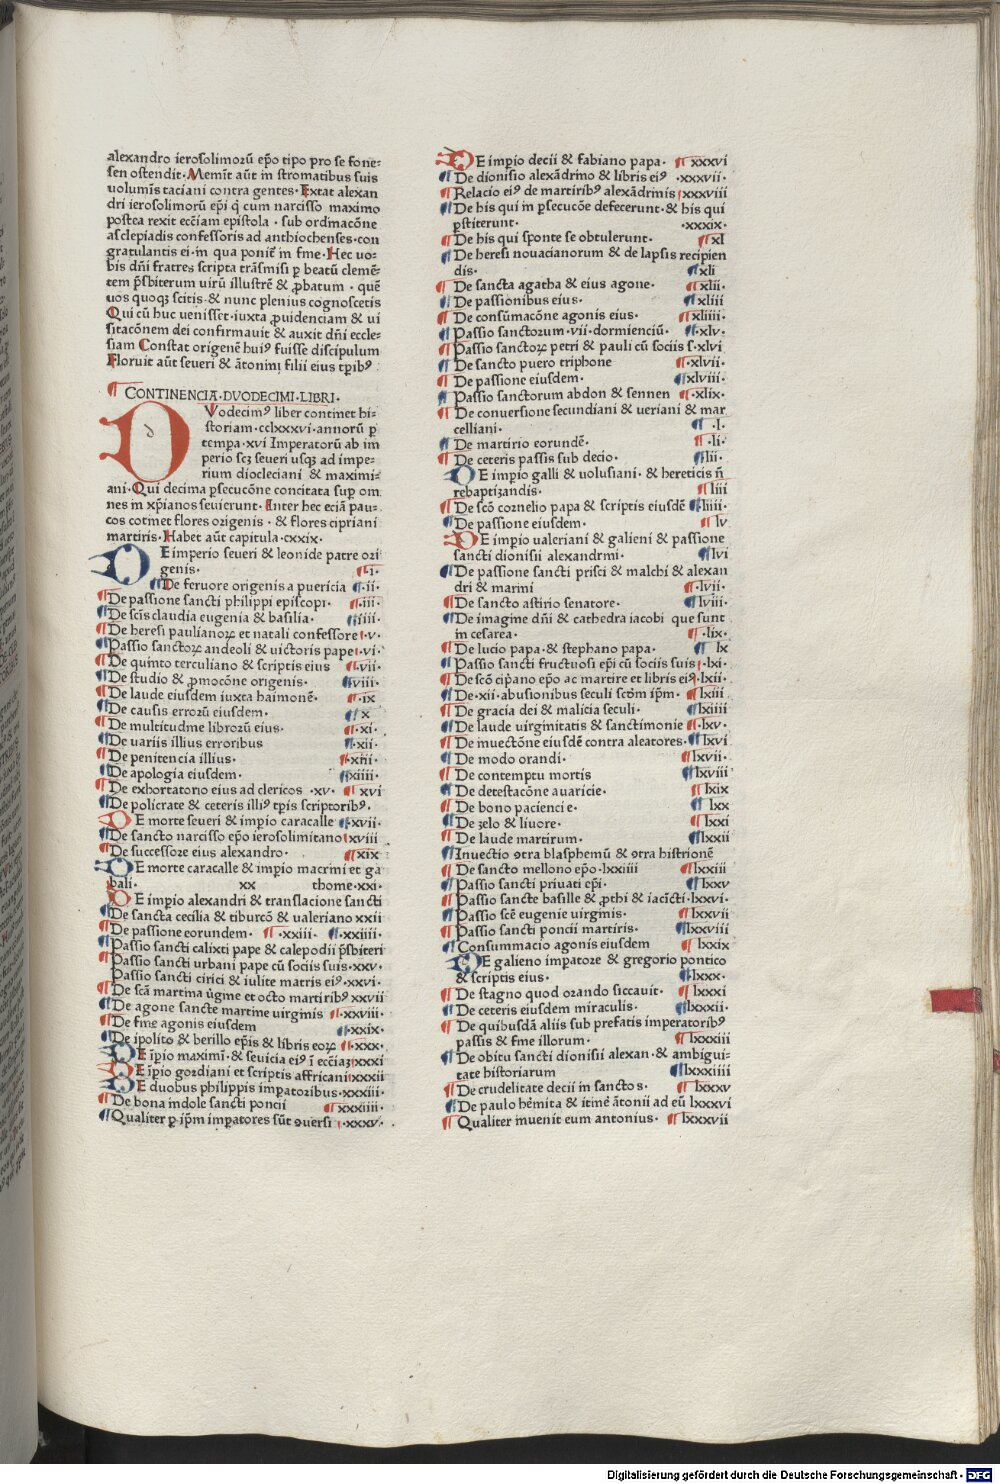 alexandro ierosolimorū ep̄o tipo pro se fone-
sen ostendit· Memīt aūt in stromatibus suis
uolumīs taciani contra gentes· Extat alexan
dri ierosolimorū ep̄i q̄ cum narcisso maximo
postea rexit eccīam epistola · sub ordinacōne
asclepiadis confessoris ad anthiochenses· con
gratulantis ei· in qua ponit̄ in fine· Hec uo-
bis dn̄i fratres scripta trāsmisi p beatū clemē-
tem p̄sbiterum uirū illustrē & ꝓbatum · quē
uos quoqꝫ scitis· & nunc plenius cognoscetis
Qui cū huc uenisset· iuxta ꝓuidenciam & ui
sitacōnem dei confirmauit & auxit dn̄i eccle-
siam Constat origenē huiꝰ fuisse discipulum
Floruit aūt seueri & ātonini filii eius tp̄ibꝰ
CONTINENCIA· DVODECIMI· LIBRI·
DVodecimꝰ liber continet hi-
storiam· cclxxxvi· annorū p
tempa· xvi Imperatorū ab im
perio scꝫ seueri usqꝫ ad impe-
rium diocleciani & maximi-
ani· Qui decima psecucōne concitata sup om
nes in xp̄ianos seuierunt· Inter hec eciā pau-
cos cotinet flores origenis · & flores cipriani
martiris· Habet aūt capitula· cxxix·
DE imperio seueri & leonide patre ori
genis· ·i·
De feruore origenis a puericia ·ii·
De passione sancti philippi episcopi· ·iii·
De scīs claudia eugenia & basilia· ·iiii·
De heresi paulianoꝝ et natali confessore ·v·
Passio sanctoꝝ andeoli & uictoris pape ·vi·
De quinto terculiano & scriptis eius ·vii·
De studio & ꝓmocōne origenis· ·viii·
De laude eiusdem iuxta haimonē· ·ix
De causis errorū eiusdem· x·
De multitudine librorū eius· ·xi·
De uariis illius erroribus ·xii·
De penitencia illius· ·xiii·
De apologia eiusdem· ·xiiii·
De exhortatorio eius ad clericos ·xv· xvi
De policrate & ceteris illiꝰ tp̄is scriptoribꝰ·
DE morte seueri & impio caracalle ·xvii·
De sancto narcisso ep̄o ierosolimitano xviii
De successore eius alexandro· xix
DE morte caracalle & impio macrini et ga
bali· xx thome· xxi·
DE impio alexandri & translacione sancti
De sancta cecilia & tiburcō & ualeriano xxii
De passione eorundem· ·xxiii· ·xxiiii·
Passio sancti calixti pape & calepodii p̄sbiteri
Passio sancti urbani pape cū sociis suis· xxv·
Passio sancti cirici & iulite matris eiꝰ· xxvi·
De scā martina ūgine et octo martiribꝰ xxvii
De agone sancte martine uirginis ·xxviii·
De fine agonis eiusdem ·xxix·
De ipolito & berillo ep̄is & libris eoꝝ ·xxx·
DE ip̄io maximī· & seuicia eiꝰ ī eccīaꝫ xxxi
DE ip̄io gordiani et scriptis affricani xxxii
DE duobus philippis impatoribus· xxxiii·
De bona indole sancti poncii xxxiiii·
Qualiter p ip̄m impatores sūt ꝯuersi ·xxxv·
DE impio decii & fabiano papa· xxxvi
De dionisio alexādrino & libris eiꝰ ·xxxvii·
Relacio eiꝰ de martiribꝰ alexādrinis xxxviii
De his qui in psecucōe defecerunt· & his qui
pstiterunt· ·xxxix·
De his qui sponte se obtulerunt· xl
De heresi nouacianorum & de lapsis recipien
dis· xli
De sancta agatha & eius agone· xlii·
De passionibus eius· xliii
De consūmacōne agonis eius· xliiii·
Passio sanctorum ·vii· dormienciū· ·xlv·
Passio sanctoꝝ petri & pauli cū sociis s· xlvi
De sancto puero triphone ·xlvii·
De passione eiusdem· xlviii·
Passio sanctorum abdon & sennen ·xlix·
De conuersione secundiani & ueriani & mar
celliani· ·l·
De martirio eorundē· ·li·
De ceteris passis sub decio· lii·
DE impio galli & uolusiani· & hereticis n̄
rebaptiꝫandis· liii
De scō cornelio papa & scriptis eiusdē liiii·
De passione eiusdem· lv
DE impio ualeriani & galieni & passione
sancti dionisii alexandrini· lvi
De passione sancti prisci & malchi & alexan
dri & marini ·lvii·
De sancto astirio senatore· lviii·
De imagine dn̄i & cathedra iacobi que sunt
in cesarea· ·lix·
De lucio papa· & stephano papa· lx
Passio sancti fructuosi ep̄i cū sociis suis ·lxi·
De scō cip̄ano ep̄o ac martire et libris eiꝰ· lxii·
De· xii· abusionibus seculi scd̄m ip̄m· lxiii
De gracia dei & malicia seculi· lxiiii
De laude uirginitatis & sanctimonie ·lxv·
De inuectōne eiusdē contra aleatores· lxvi
De modo orandi· lxvii·
De contemptu mortis lxviii
De detestacōne auaricie· lxix
De bono paciencie· lxx
De ꝫelo & liuore· lxxi
De laude martirum· lxxii
Inuectio ꝯtra blasphemū & ꝯtra histrionē
De sancto mellono ep̄o· lxxiiii lxxiii
Passio sancti priuati ep̄i· lxxv
Passio sancte basille & ꝓthi & iacīcti· lxxvi·
Passio scē eugenie uirginis· lxxvii
Passio sancti poncii martiris· lxxviii
Consummacio agonis eiusdem lxxix
DE galieno impatore & gregorio pontico
& scriptis eius· lxxx·
De stagno quod orando siccauit· lxxxi
De ceteris eiusdem miraculis· lxxxii·
De quibusdā aliis sub prefatis imperatoribꝰ
passis & fine illorum· lxxxiii
De obitu sancti dionisii alexan· & ambigui-
tate historiarum lxxxiiii
De crudelitate decii in sanctos· lxxxv
De paulo hēmita & itinē ātonii ad eū lxxxvi
Qualiter inuenit eum antonius· lxxxvii
Digitalisierung gefördert durch die Deutsche Forschungsgemeinschaft · DFG